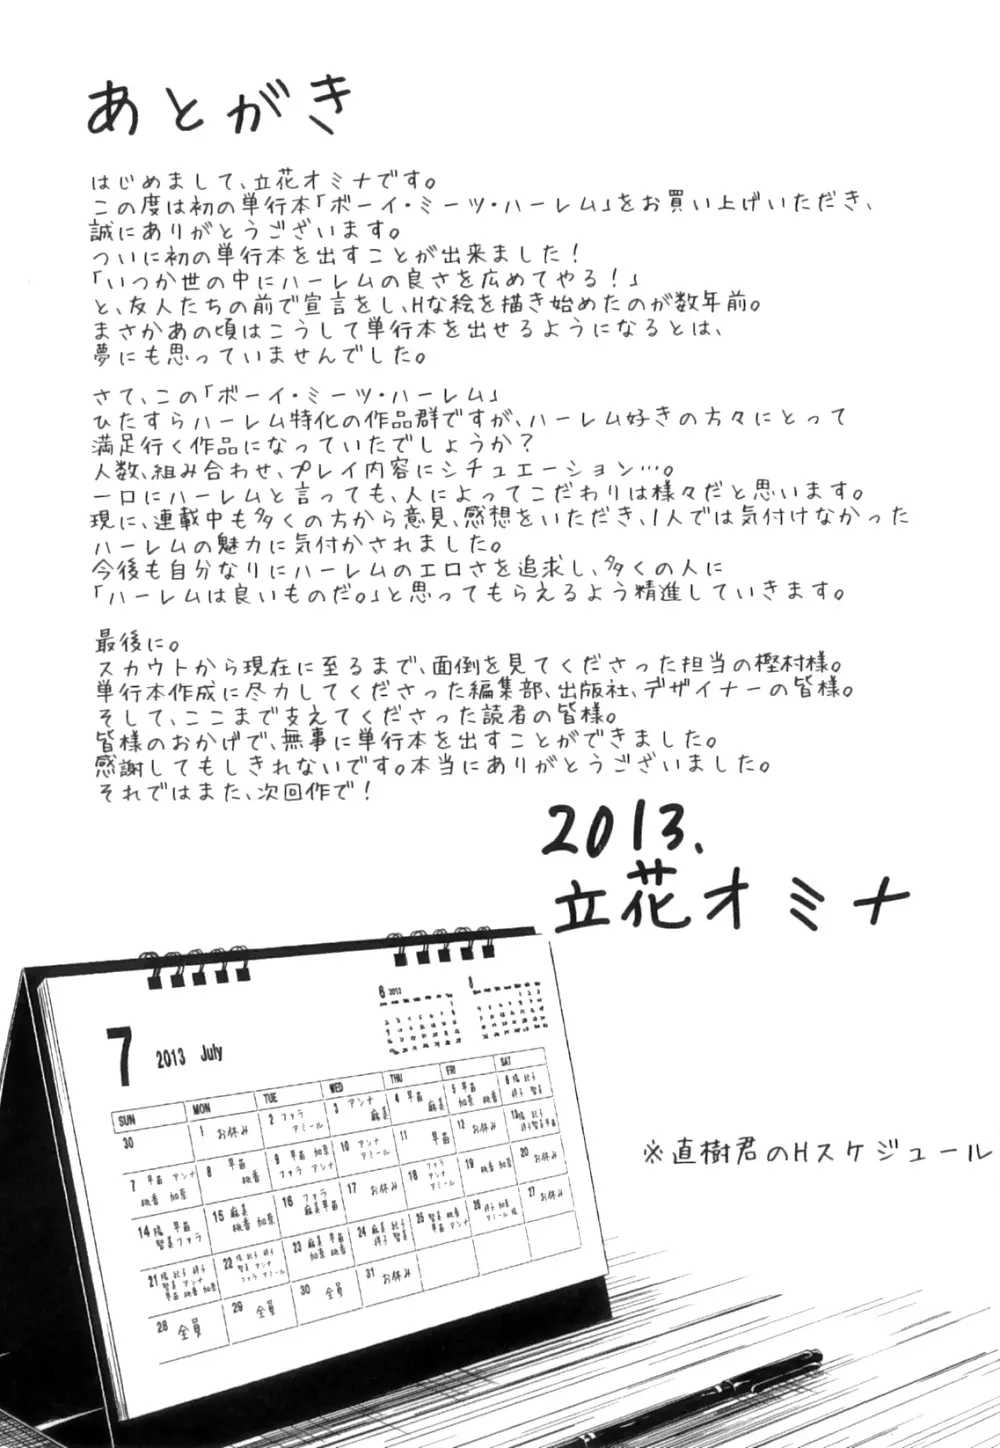 あとがき
はじめまして、立花オミナです。
この度は初の単行本「ボーイ・ミーツ・ハーレム」をお買い上げいただき、
誠にありがとうございます。
ついに初の単行本を出すことが出来ました!
「いつか世の中にハーレムの良さを広めてやる!」
と、友人たちの前で宣言をし、Hな絵を描き始めたのが数年前。
まさかあの頃はこうして単行本を出せるようになるとは、
夢にも思っていませんでした。
さて、この「ボーイ・ミーツ・ハーレム」
ひたすらハーレム特化の作品群ですが、ハーレム好きの方々にとって
満足行く作品になっていたでしょうか?
人数、組み合わせ、プレイ内容にシチュエーション…。
一口にハーレムと言っても、人によってこだわりは様々だと思います。
現に、連載中も多くの方から意見、感想をいただき、1人では気付けなかった
ハーレムの魅力に気付かされました。
今後も自分なりにハーレムのエロさを追求し、多くの人に
「ハーレムは良いものだ。」と思ってもらえるよう精進していきます。
最後に。
スカウトから現在に至るまで、面倒を見てくださった担当の樫村様。
単行本作成に尽力してくださった編集部、出版社、デザイナーの皆様。
そして、ここまで支えてくださった読者の皆様。
皆様のおかげで、無事に単行本を出すことができました。
感謝してもしきれないです。本当にありがとうございました。
それではまた、次回作で!
2013.
立花オミナ
6 2013
8
7 2013 July
SUN MON TUE WED THU FRI SAT
30
1 お休み
2 ファラ
アミール
3 アンナ
麻美
4 早苗
麻美
5 早苗
加奈 桃香
6 陽 紋子
祥子 智美
7 早苗 アンナ
桃香 加奈
8 早苗
桃香
9 早苗 加奈
ファラ アンナ
10 アンナ
アミール
11 早苗
12 お休み
13 陽 紋子
祥子 智美 早苗
14 陽 早苗
智美 ファラ
15 麻美
桃香 加奈
16 ファラ
麻美 早苗
17 お休み
18 ファラ
アンナ
アミール
19 桃香
加奈
20 お休み
21 陽 紋子 祥子
智美 アンナ
早苗 桃香 加奈
22 陽 紋子 祥子
智美 アンナ
ファラ アミール
23 麻美 早苗
加奈 桃香
24 麻美 紋子
祥子 智美
25 智美 桃香
早苗 アンナ
26 祥子 加奈
アミール 陽
27 お休み
28 全員
29 全員
30 全員
31 お休み
※直樹君のHスケジュール